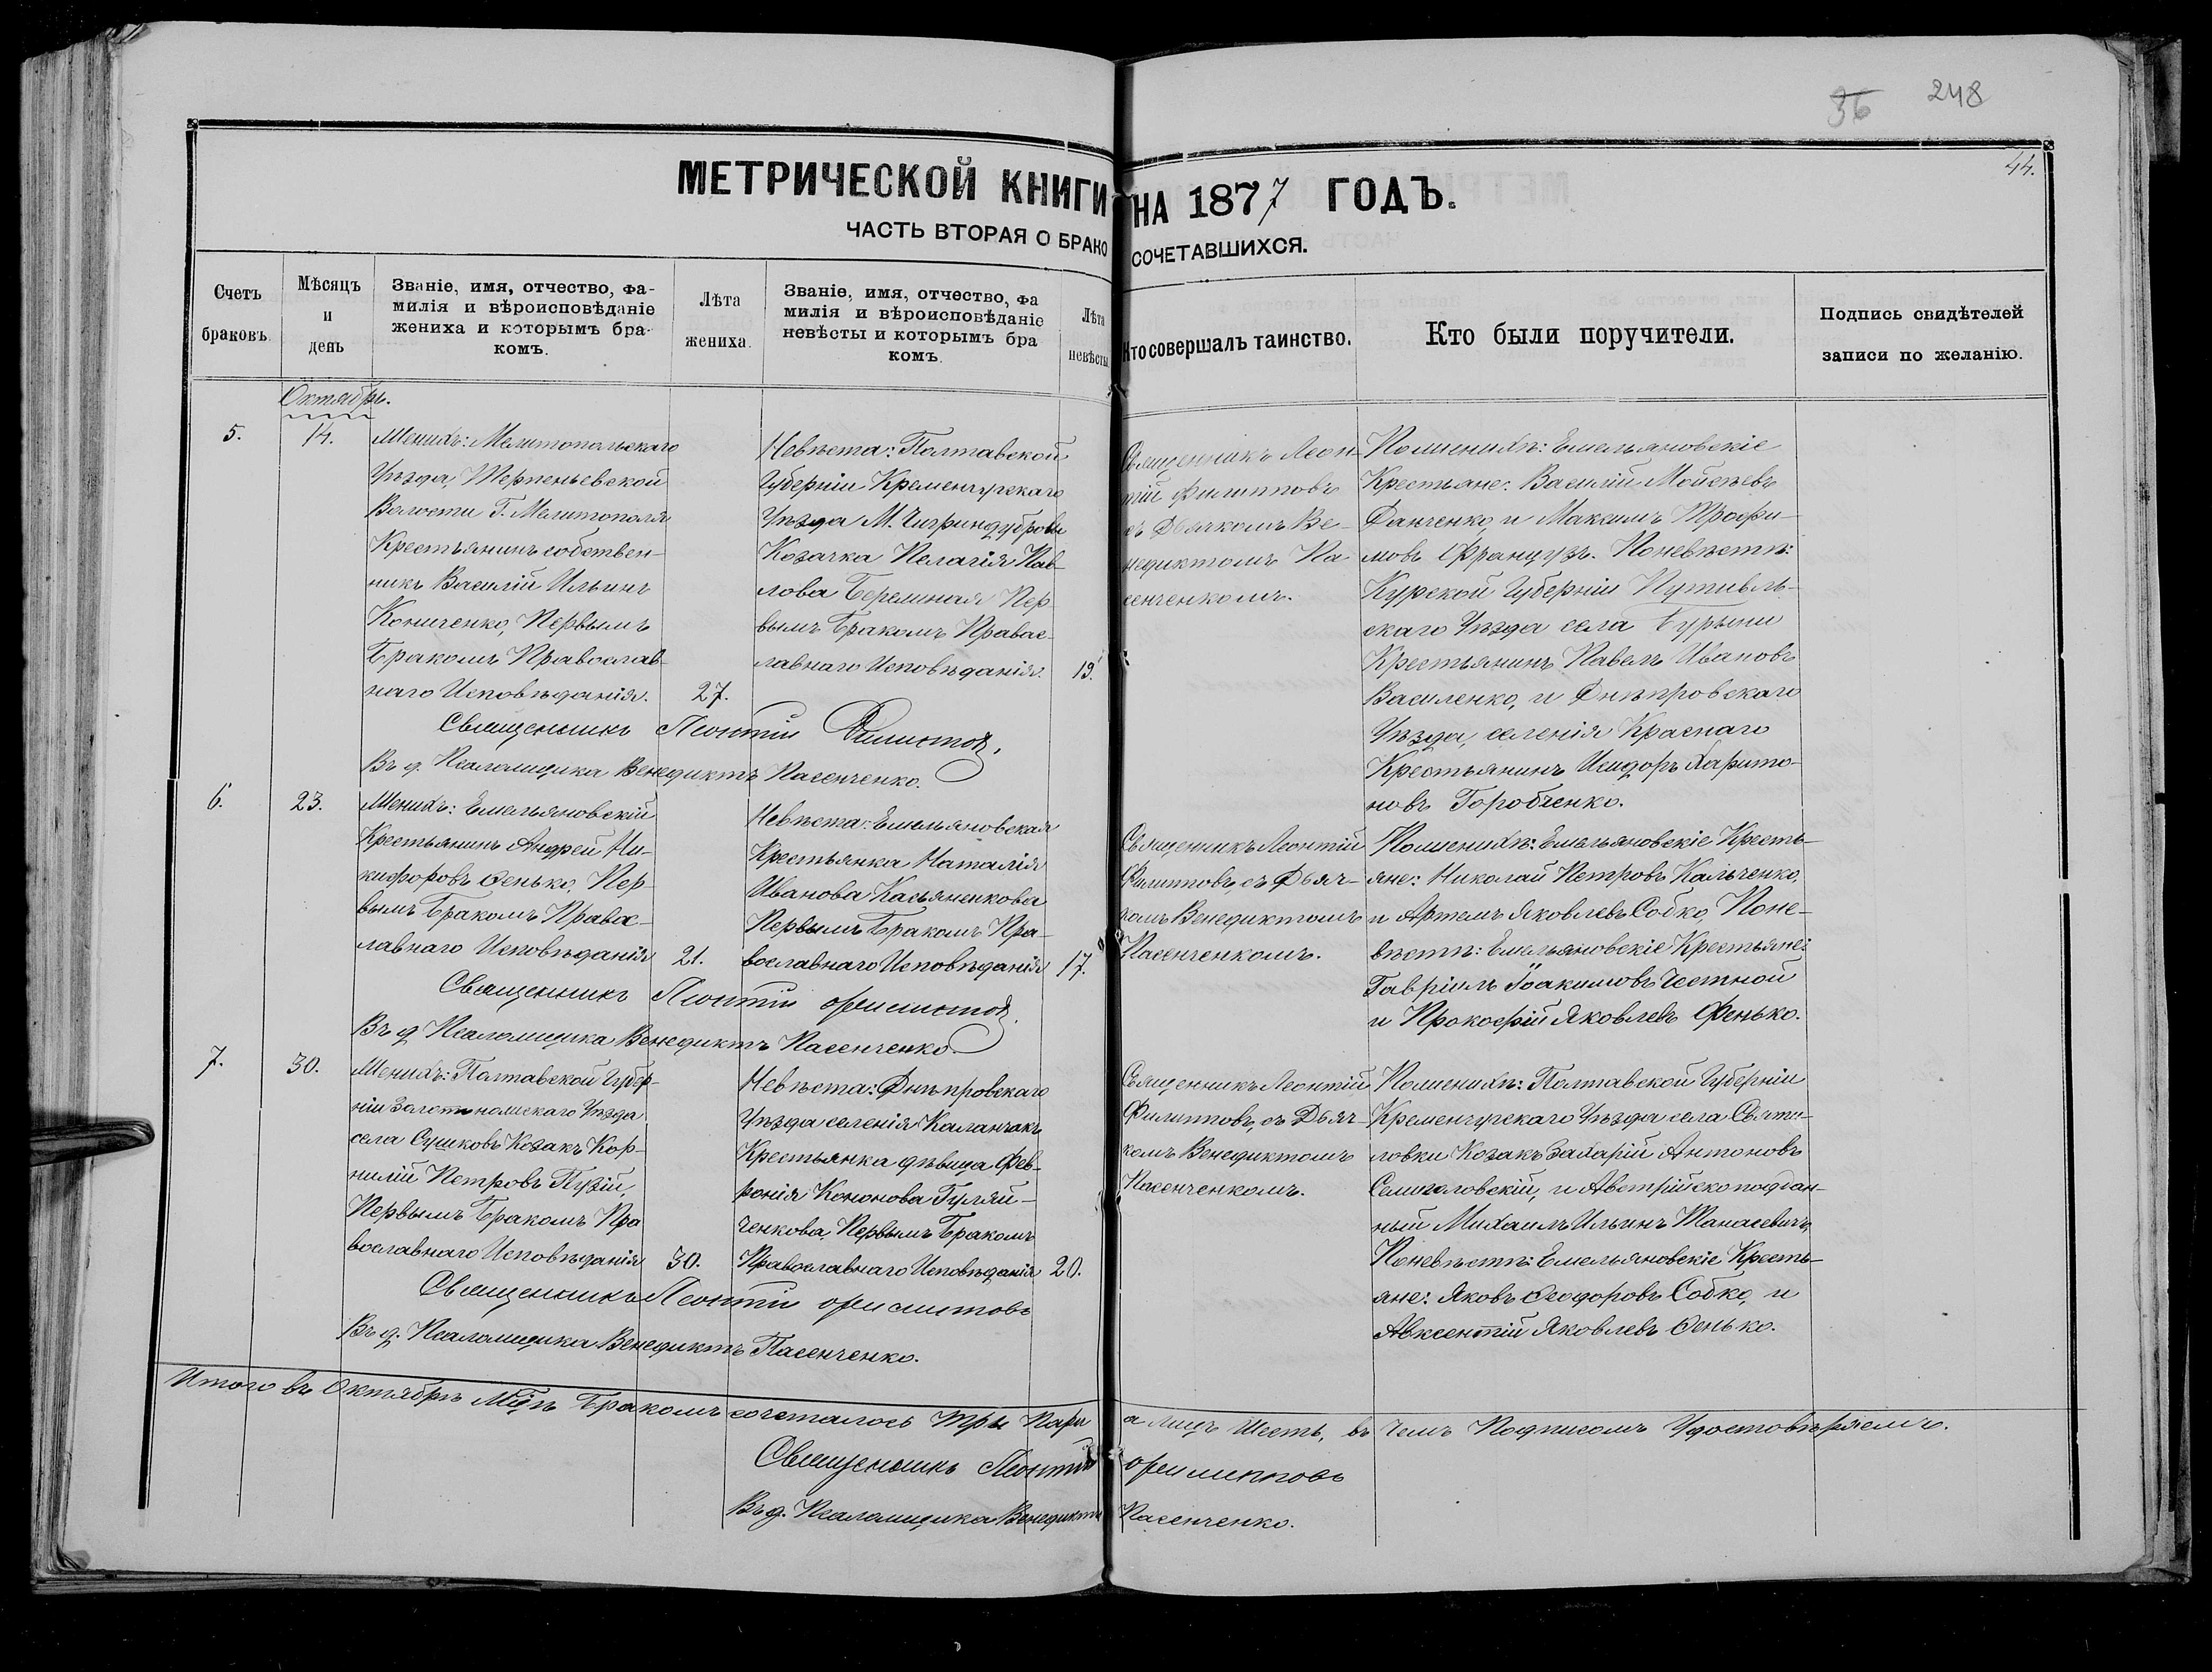 36 248
44.
МЕТРИЧЕСКОЙ КНИГИ НА 1877 ГОДЪ.
ЧАСТЬ ВТОРАЯ О БРАКОСОЧЕТАВШИХСЯ.
Счетъ
браковъ.
Мѣсяцъ
и
день
Званіе, имя, отчество, фа-
милія и вѣроисповѣданіе
жениха и которымъ бра-
комъ.
Лѣта
жениха.
Званіе, имя, отчество, фа
милія и вѣроисповѣданіе
невѣсты и которымъ бра
комъ.
Лѣта
невѣсты
Кто совершалъ таинство.
Кто были поручители.
Подпись свидѣтелей
записи по желанію.
Октябрь.
5.
14.
Женихъ: Мелитопольскаго
Уѣзда, Терпеньевской
Волости Г. Мелитополя
Крестьянинъ собствен-
никъ Василій Ильинъ
Кониченко, Первымъ
Бракомъ Православ-
наго Исповѣданія.
27.
Невѣста: Полтавской
Губерніи Кременчугскаго
Уѣзда М. Чигриндубровы
Козачка Пелагія Пав-
лова Беремная Пер-
вымъ Бракомъ Правос-
лавнаго Исповѣданія.
19.
Священникъ Леон-
тій Филипповъ
съ Дьячкомъ Ве-
недиктомъ Па
сенченкомъ.
Поженихѣ: Емельяновскіе
Крестьяне: Василій Мойсѣевъ
Данченко, и Максимъ Трофи-
мовъ Французъ. Поневѣстѣ:
Курской Губерніи Путивль-
скаго Уѣзда села Бурыни
Крестьянинъ Павелъ Ивановъ
Василенко, и Днѣпровскаго
Уѣзда, селенія Краснаго
Крестьянинъ Исидоръ Харито-
новъ Горобченко.
Священникъ Леонтій Филиповъ.
Въ д. Псаломщика Венедиктъ Пасенченко.
6.
23.
Женихъ: Емельяновскій
Крестьянинъ Андрей Ни-
кифоровъ Ѳенько, Пер-
вымъ Бракомъ Правос-
лавнаго Исповѣданія
21.
Невѣста: Емельяновская
Крестьянка Наталія
Иванова Касьяненкова
Первымъ Бракомъ Пра-
вославнаго Исповѣданія
17.
Священникъ Леонтій
Филипповъ, съ Дьяч-
комъ Венедиктомъ
Пасенченкомъ.
Поженихѣ: Емельяновскіе Кресть-
яне: Николай Петровъ Кальченко,
и Артемъ Яковлевъ Собко, Поне-
вѣстѣ: Емельяновскіе Крестьяне:
Гавріилъ Іоакимовъ Честной
и Прокофій Яковлевъ Фенько.
Священникъ Леонтій Филиповъ.
Въ д. Псаломщика Венедиктъ Пасенченко.
7.
30.
Женихъ: Полтавской Губер-
ніи Золотоношскаго Уѣзда
села Сушковъ Козакъ Кор-
нилій Петровъ Пузій,
Первымъ Бракомъ Пра
вославнаго Исповѣданія
30.
Невѣста: Днѣпровскаго
Уѣзда селенія Каланчакъ
Крестьянка дѣвица Фев-
ронія Кононова Гуляй-
ченкова, Первымъ Бракомъ
Православнаго Исповѣданія
20.
Священникъ Леонтій
Филипповъ, съ Дьяч-
комъ Венедиктомъ
Пасенченкомъ.
Поженихѣ: Полтавской Губерніи
Кременчугскаго Уѣзда села Святи-
ловки Козакъ Захарій Антоновъ
Семиголовскій, и Австрійскоподдан-
ный Михаилъ Ильинъ Танасевичъ,
Поневѣстѣ: Емельяновскіе Кресть-
яне: Яковъ Ѳеодоровъ Собко, и
Авксентій Яковлевъ Ѳенько.
Священникъ Леонтій Филиповъ
Въ д. Псаломщика Венедиктъ Пасенченко.
Итого въ Октябрѣ Мцѣ Бракомъ сочеталось Три Пары а лицъ Шесть, въ Чемъ Подписомъ Удостовѣряемъ.
Священникъ Леонтій Филипповъ
Въ д. Псаломщика Венедиктъ Пасенченко.